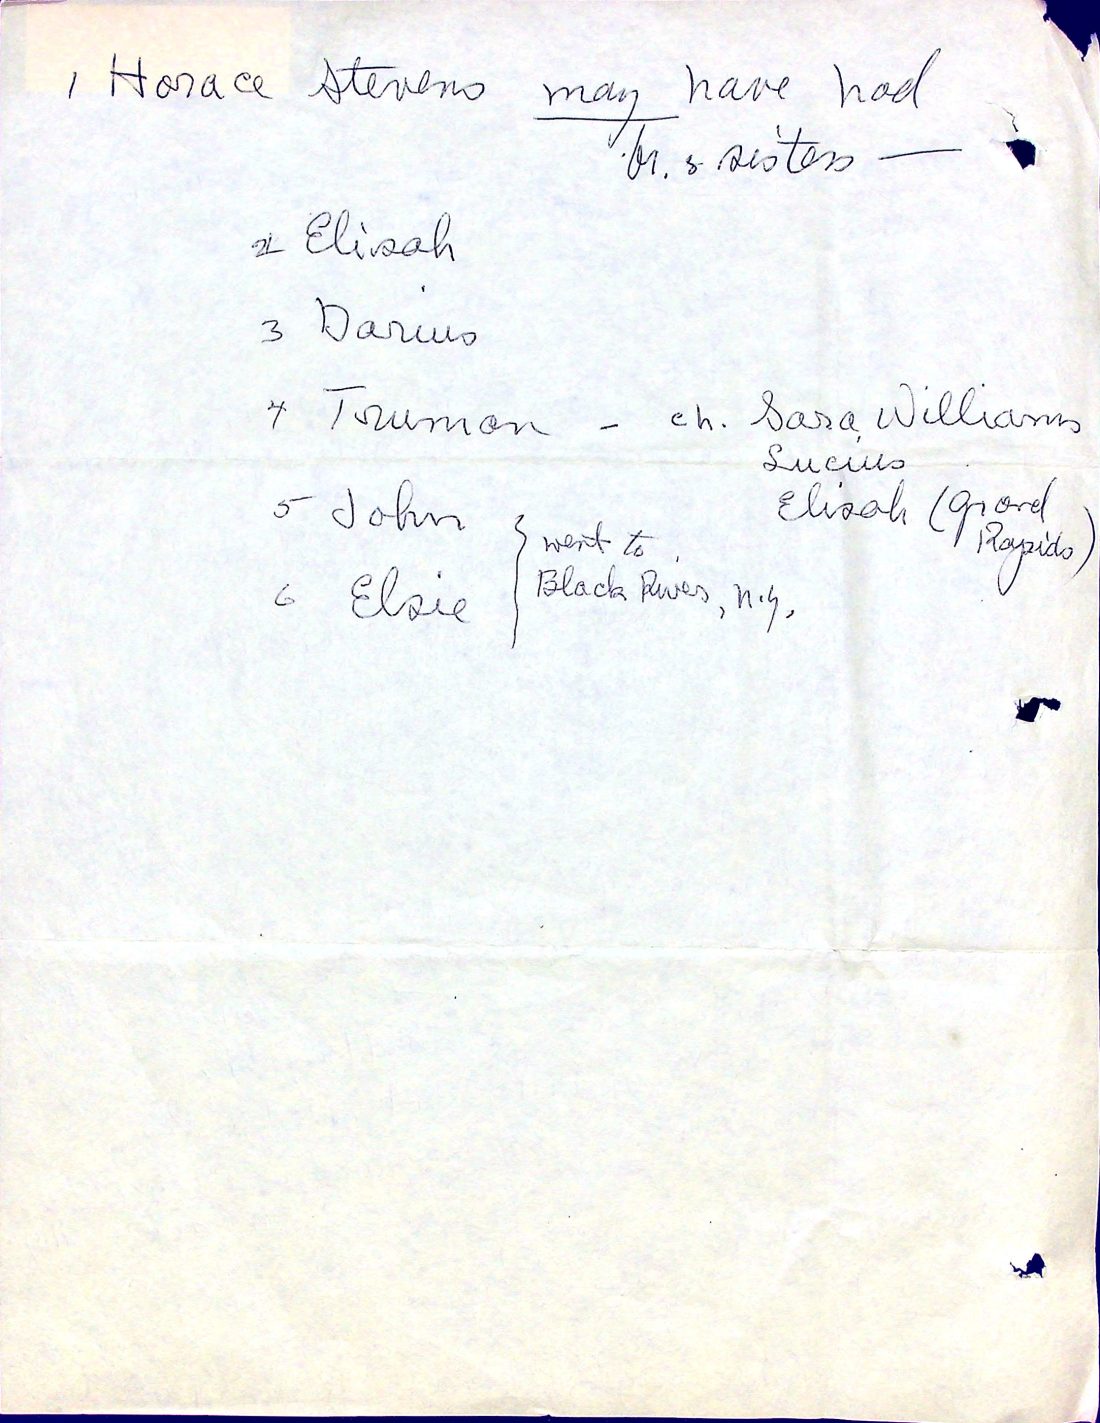 1 Horace Stevens may have had
br. & sisters —
2 Elisah
3 Darius
4 Truman - ch. Sara, Williams
Lucius
5 John Elisah (Grand
Rapids)
{ went to
6 Elsie Black River, N.Y.